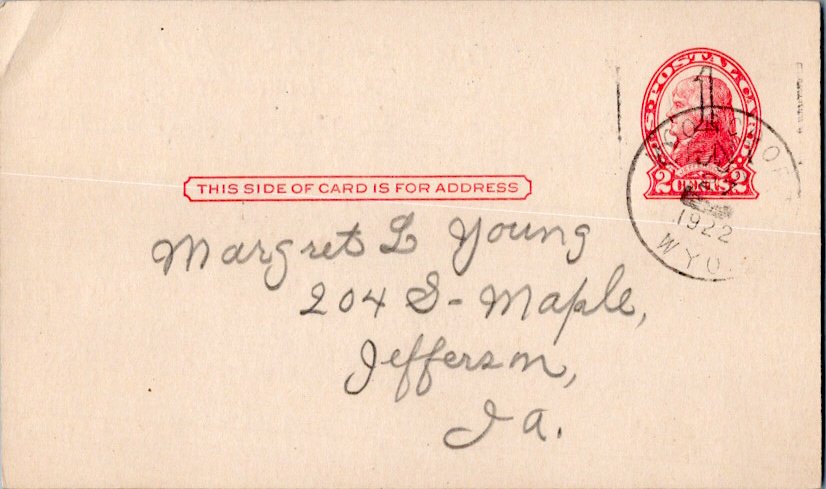 U.S. POSTAL CARD
1
2 CENTS 2
1922
WYO.
THIS SIDE OF CARD IS FOR ADDRESS
Margret L Young
204 S - Maple,
Jefferson,
Ia.